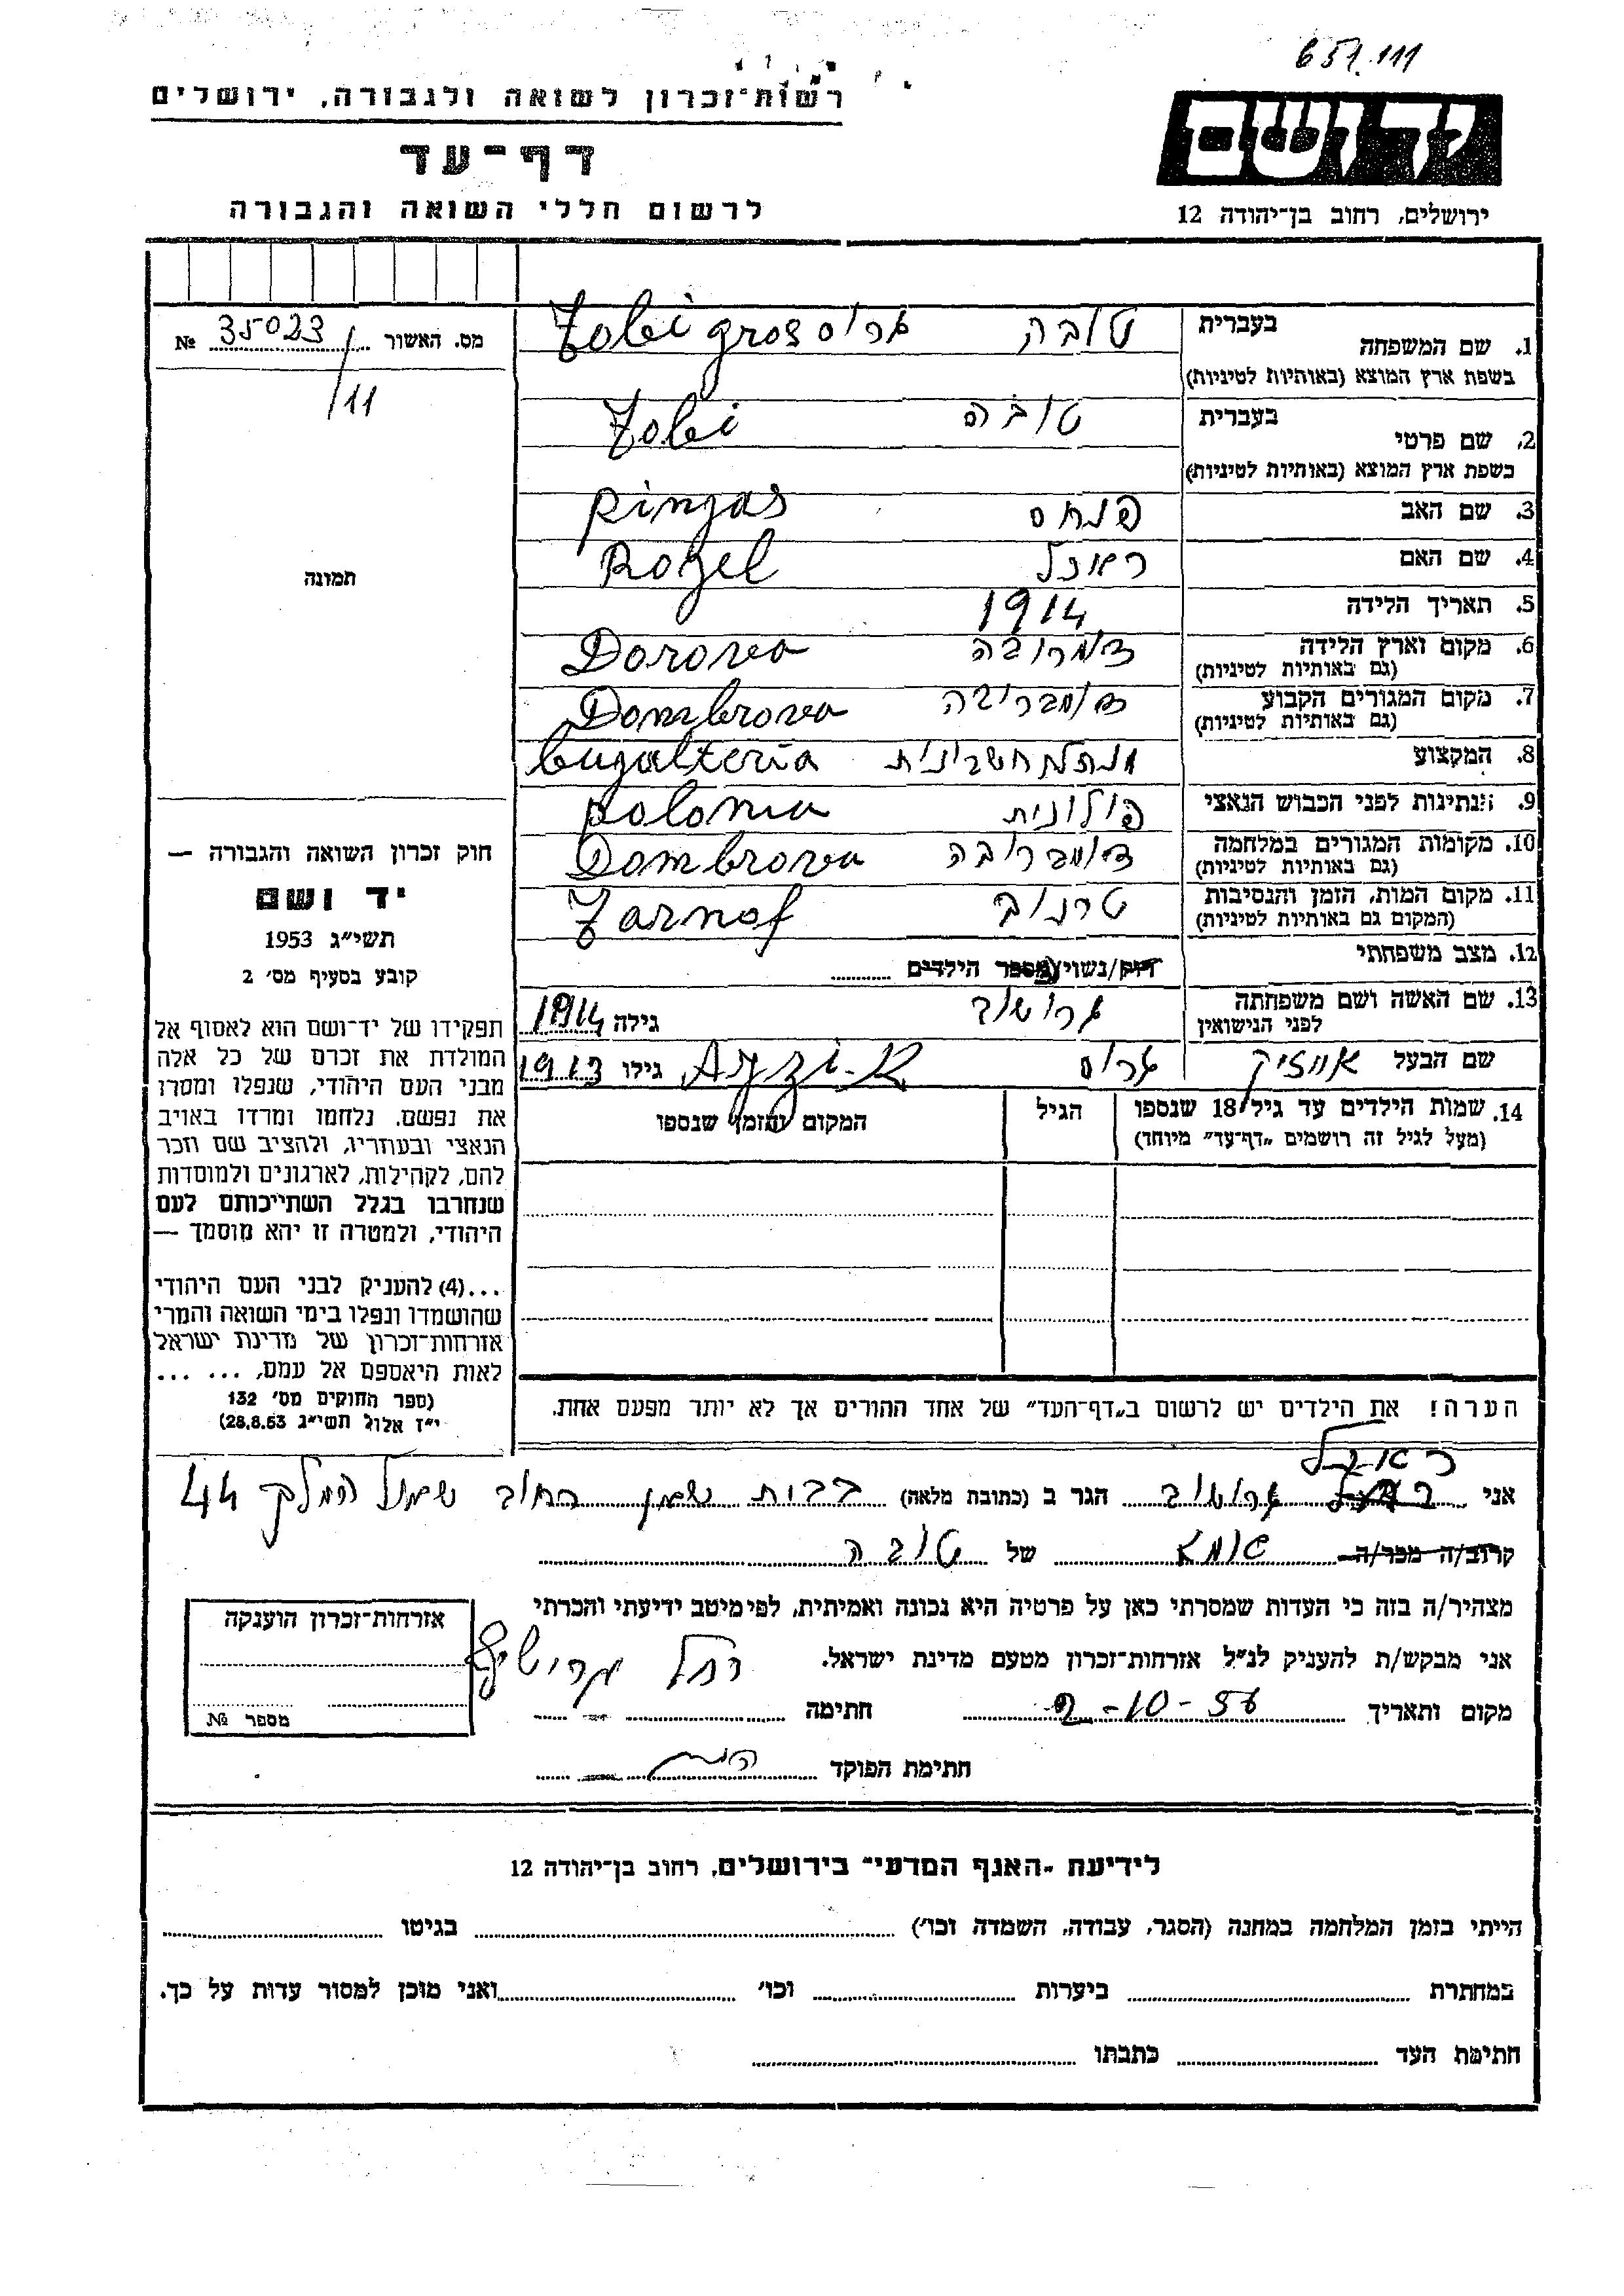 651.111
רשות-זכרון לשואה ולגבורה, ירושלים
דף-עד
לרשום חללי השואה והגבורה
יד ושם
ירושלים, רחוב בן-יהודה 12
מס. האשור 35023 №
/11
תמונה
חוק זכרון השואה והגבורה —
יד ושם
תשי״ג 1953
קובע בסעיף מס׳ 2
תפקידו של יד-ושם הוא לאסוף אל
המולדת את זכרם של כל אלה
מבני העם היהודי, שנפלו ומסרו
את נפשם, נלחמו ומרדו באויב
הנאצי ובעוזריו, ולהציב שם וזכר
להם, לקהילות, לארגונים ולמוסדות
שנחרבו בגלל השתייכותם לעם
היהודי, ולמטרה זו יהא מוסמך —
...(4) להעניק לבני העם היהודי
שהושמדו ונפלו בימי השואה והמרי
אזרחות-זכרון של מדינת ישראל
לאות היאספם אל עמם, ... ...
(ספר החוקים מס׳ 132
י״ז אלול תשי״ג 28.8.53)
1. שם המשפחה בעברית טובה גרוס Tobi gros
בשפת ארץ המוצא (באותיות לטיניות)
2. שם פרטי בעברית טובה Tobi
בשפת ארץ המוצא (באותיות לטיניות)
3. שם האב פנחס Pinzas
4. שם האם ראכל Rozel
5. תאריך הלידה 1914
6. מקום וארץ הלידה Dorova
(גם באותיות לטיניות)
7. מקום המגורים הקבוע דומברובה Dombrova
(גם באותיות לטיניות)
8. המקצוע מנהלת חשבונות bugalteria
9. הנתינות לפני הכבוש הנאצי פולונית polonia
10. מקומות המגורים במלחמה דומברובה Dombrova
(גם באותיות לטיניות)
11. מקום המות, הזמן והנסיבות טרנוב Tarnof
(המקום גם באותיות לטיניות)
12. מצב משפחתי רווק/נשוי/מספר הילדים
13. שם האשה ושם משפחתה גילה 1914
לפני הנישואין
שם הבעל אייזיק גרוס Ayzik גילו 1913
14. שמות הילדים עד גיל 18 שנספו הגיל המקום והזמן שנספו
(מעל לגיל זה רושמים „דף-עד״ מיוחד)
הערה! את הילדים יש לרשום ב„דף-העד״ של אחד ההורים אך לא יותר מפעם אחת.
ראכל
אני הגר ב (כתובת מלאה) רחוב המלך 44
קרוב/ה מכר/ה אמא של טובה
מצהיר/ה בזה כי העדות שמסרתי כאן על פרטיה היא נכונה ואמיתית, לפי מיטב ידיעתי והכרתי
אני מבקש/ת להעניק לנ״ל אזרחות-זכרון מטעם מדינת ישראל. רחל
מקום ותאריך 2-10-56 חתימה
חתימת הפוקד
אזרחות-זכרון הוענקה
מספר №
לידיעת „האגף המדעי״ בירושלים, רחוב בן-יהודה 12
הייתי בזמן המלחמה במחנה (הסגר, עבודה, השמדה וכו׳) בגיטו
במחתרת ביערות וכו׳ ואני מוכן למסור עדות על כך.
חתימת העד כתבתו